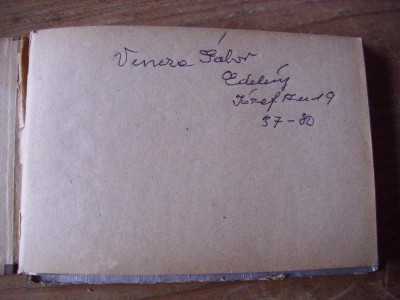 Vincze Gábor
Edelény
József A u 19
37-80